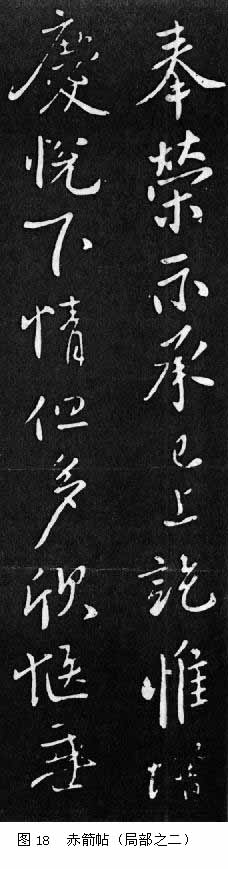 奉榮示承已上訖惟增
慶悅下情但多欣愜垂
图 18　赤箭帖（局部之二）